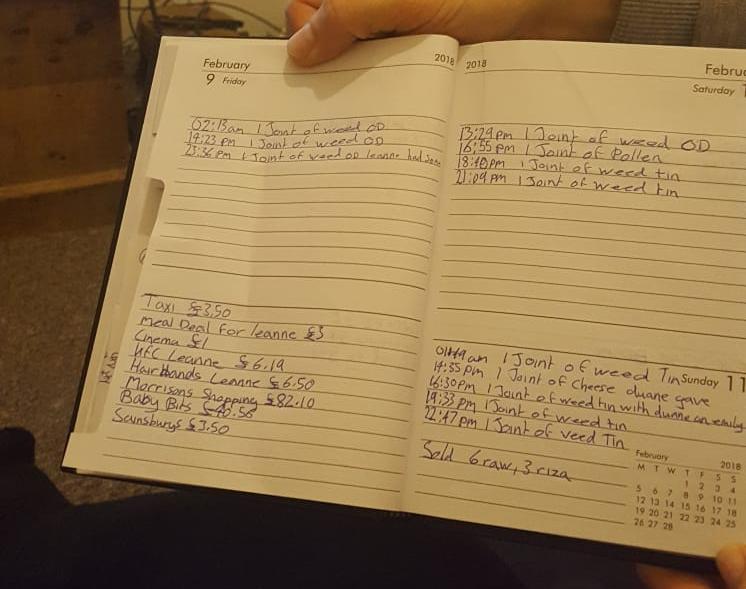 February 2018
9 Friday
02:13am 1 Joint of weed OD
14:23 pm 1 Joint of weed OD
23:36 pm 1 Joint of veed OD leanne had some
Taxi £3.50
Meal Deal for leanne £3
Cinema £1
KFC Leanne £6.19
Hairbands Leanne £6.50
Morrisons Shopping £82.10
Baby Bits
Sainsburys £3.50
2018 Februa
Saturday 1
13:29 pm 1 Joint of weed OD
16:55 pm 1 Joint of Pollen
18:40 pm 1 Joint of weed tin
21:09 pm 1 Joint of weed tin
Sunday 11
am 1 Joint of weed Tin
14:55 pm 1 Joint of Cheese duane gave
16:30 pm 1 Joint of weed tin with
19:33 pm 1 Joint of weed tin
22:47 pm 1 Joint of veed Tin
Sold 6 raw, 3 riza
February 2018
M T W T F S S
1 2 3 4
5 6 7 8 9 10 11
12 13 14 15 16 17 18
19 20 21 22 23 24 25
26 27 28